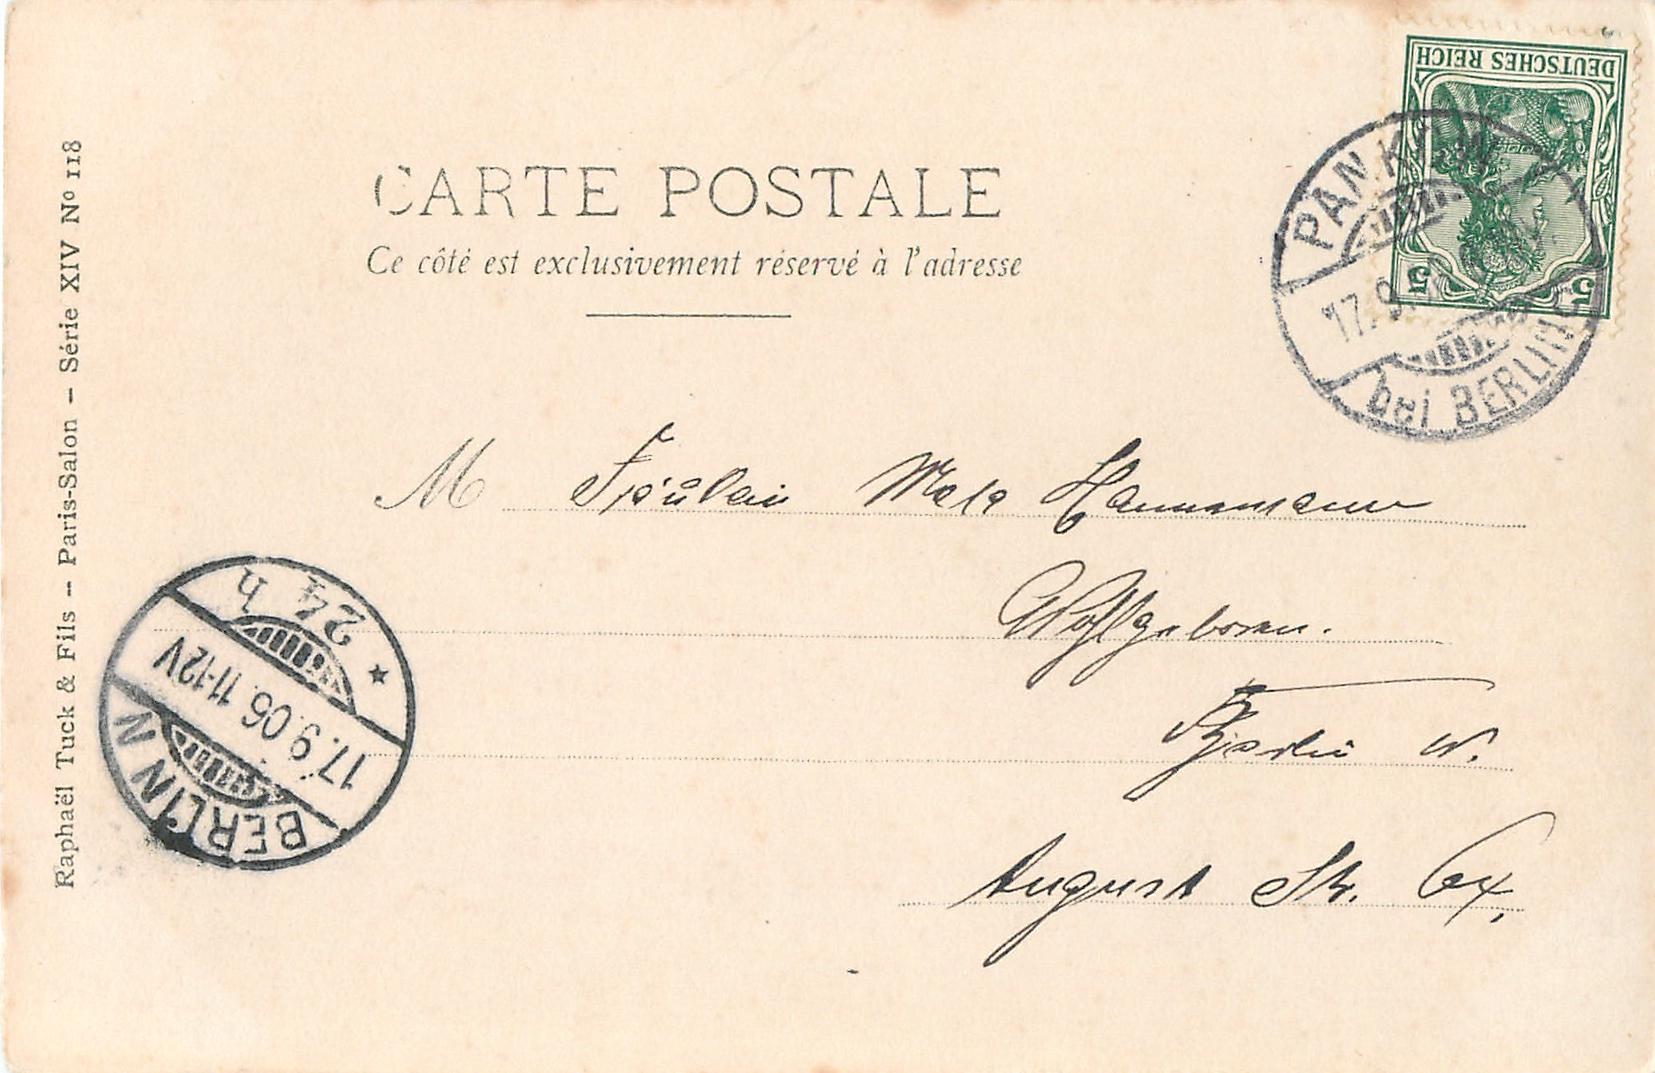 DEUTSCHES REICH
5 5
PANKOW
17.9.
bei BERLIN
CARTE POSTALE
Ce côté est exclusivement réservé à l'adresse
M Fräulein Hannemann
Wohlgeboren.
Berlin W.
August Str.
BERLIN N
17.9.06.11-12V
* 24 h
Raphaël Tuck & Fils -- Paris-Salon — Série XIV Nº 118